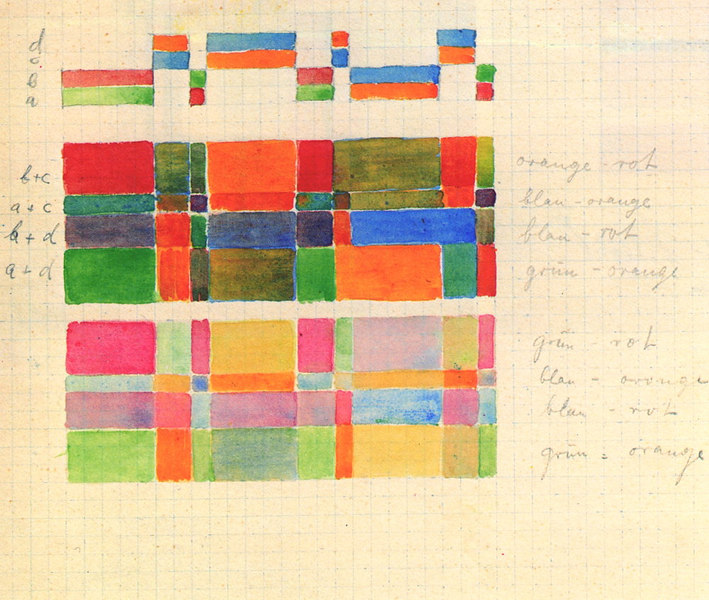 d
c
b
a
b+c
orange - rot
a+c
blau - orange
b+d
blau - rot
a+d
grün - orange
grün - rot
blau - orange
blau - rot
grün = orange